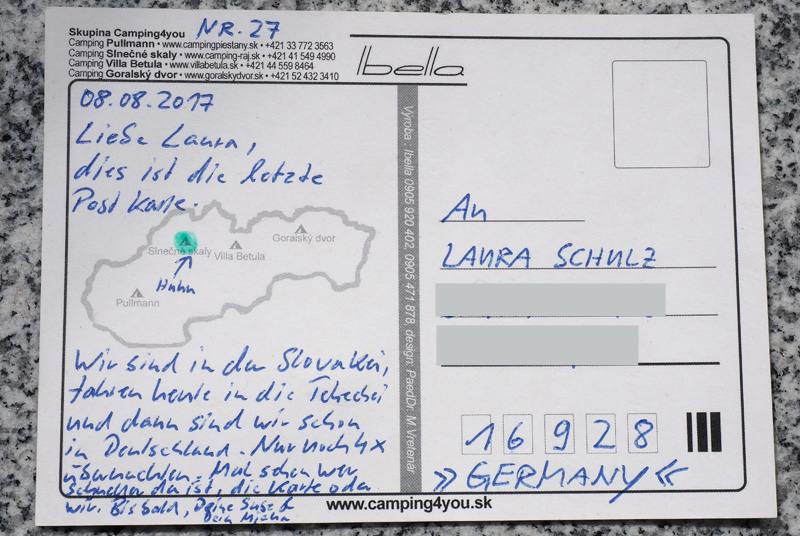 Skupina Camping4you NR. 27
Camping Pullmann • www.campingpiestany.sk • +421 33 772 3563
Camping Slnečné skaly • www.camping-raj.sk • +421 41 549 4990
Camping Villa Betula • www.villabetula.sk • +421 44 559 8464
Camping Goralský dvor • www.goralskydvor.sk • +421 52 432 3410
Ibella
08.08.2017
Liebe Laura,
dies ist die letzte
Postkarte.
Goralský dvor
Slnečné skaly
Villa Betula
Huhu
Pullmann
Wir sind in der Slovakei,
fahren heute in die Tchechei
und dann sind wir schon
in Deutschland. Nur noch 4x
übernachten. Mal sehen wer
schneller da ist, die Karte oder
wir. Bis bald, Deine Susi &
Dein Micha
Výroba : Ibella 0905 920 402, 0905 471 878, design: PaedDr. M.Vreťenár
An
LAURA SCHULZ
16928
» GERMANY «
www.camping4you.sk